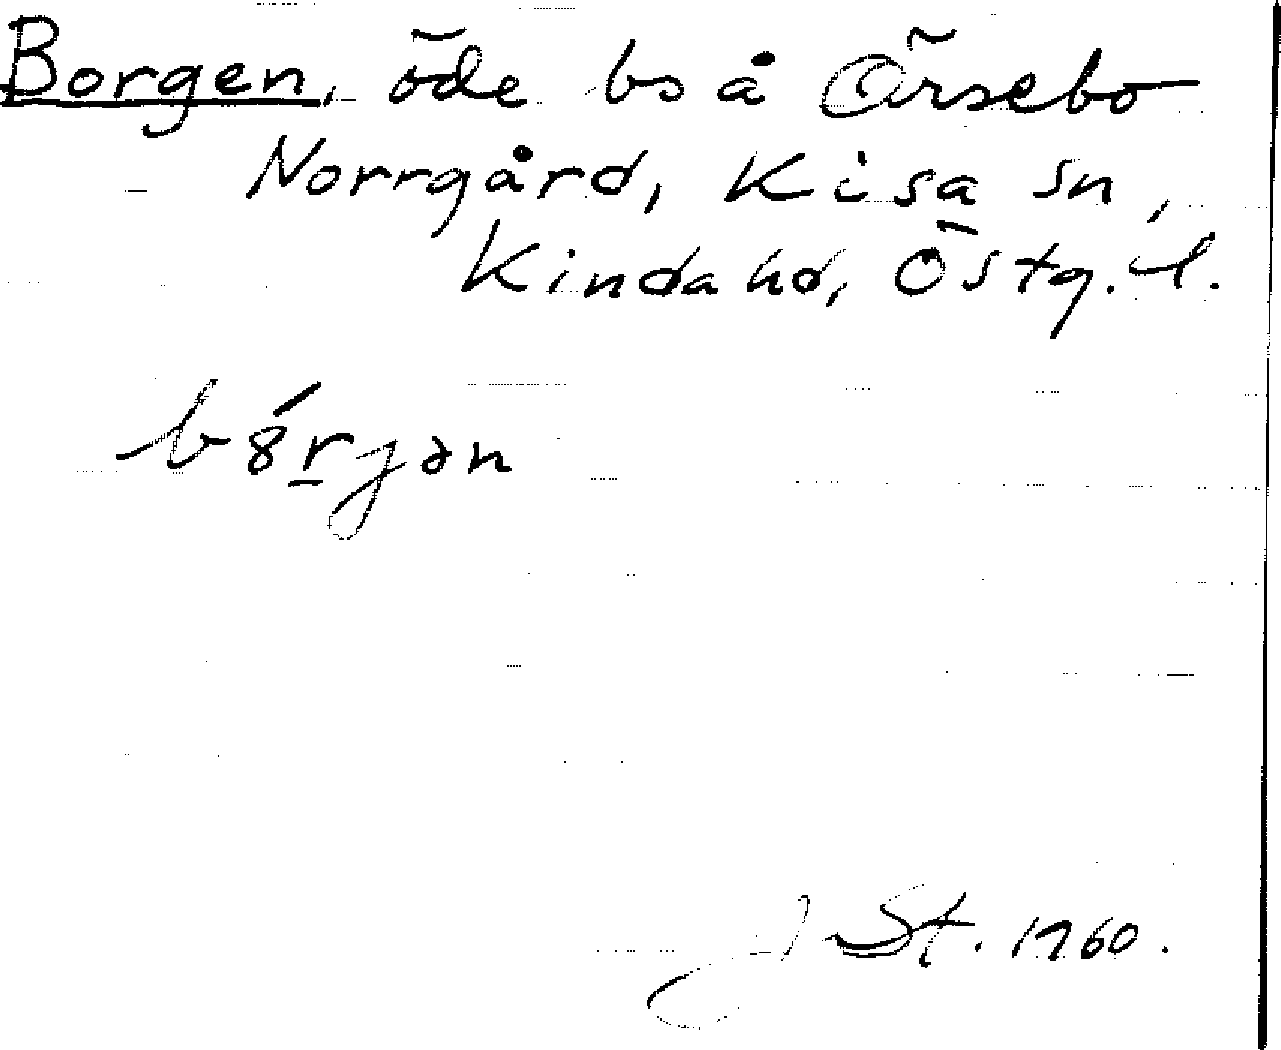 Borgen, öde bs å Örsebo
Norrgård, Kisa sn,
Kinda hd, Östg. l.
bȣ́r̠jən
J St. 1960.